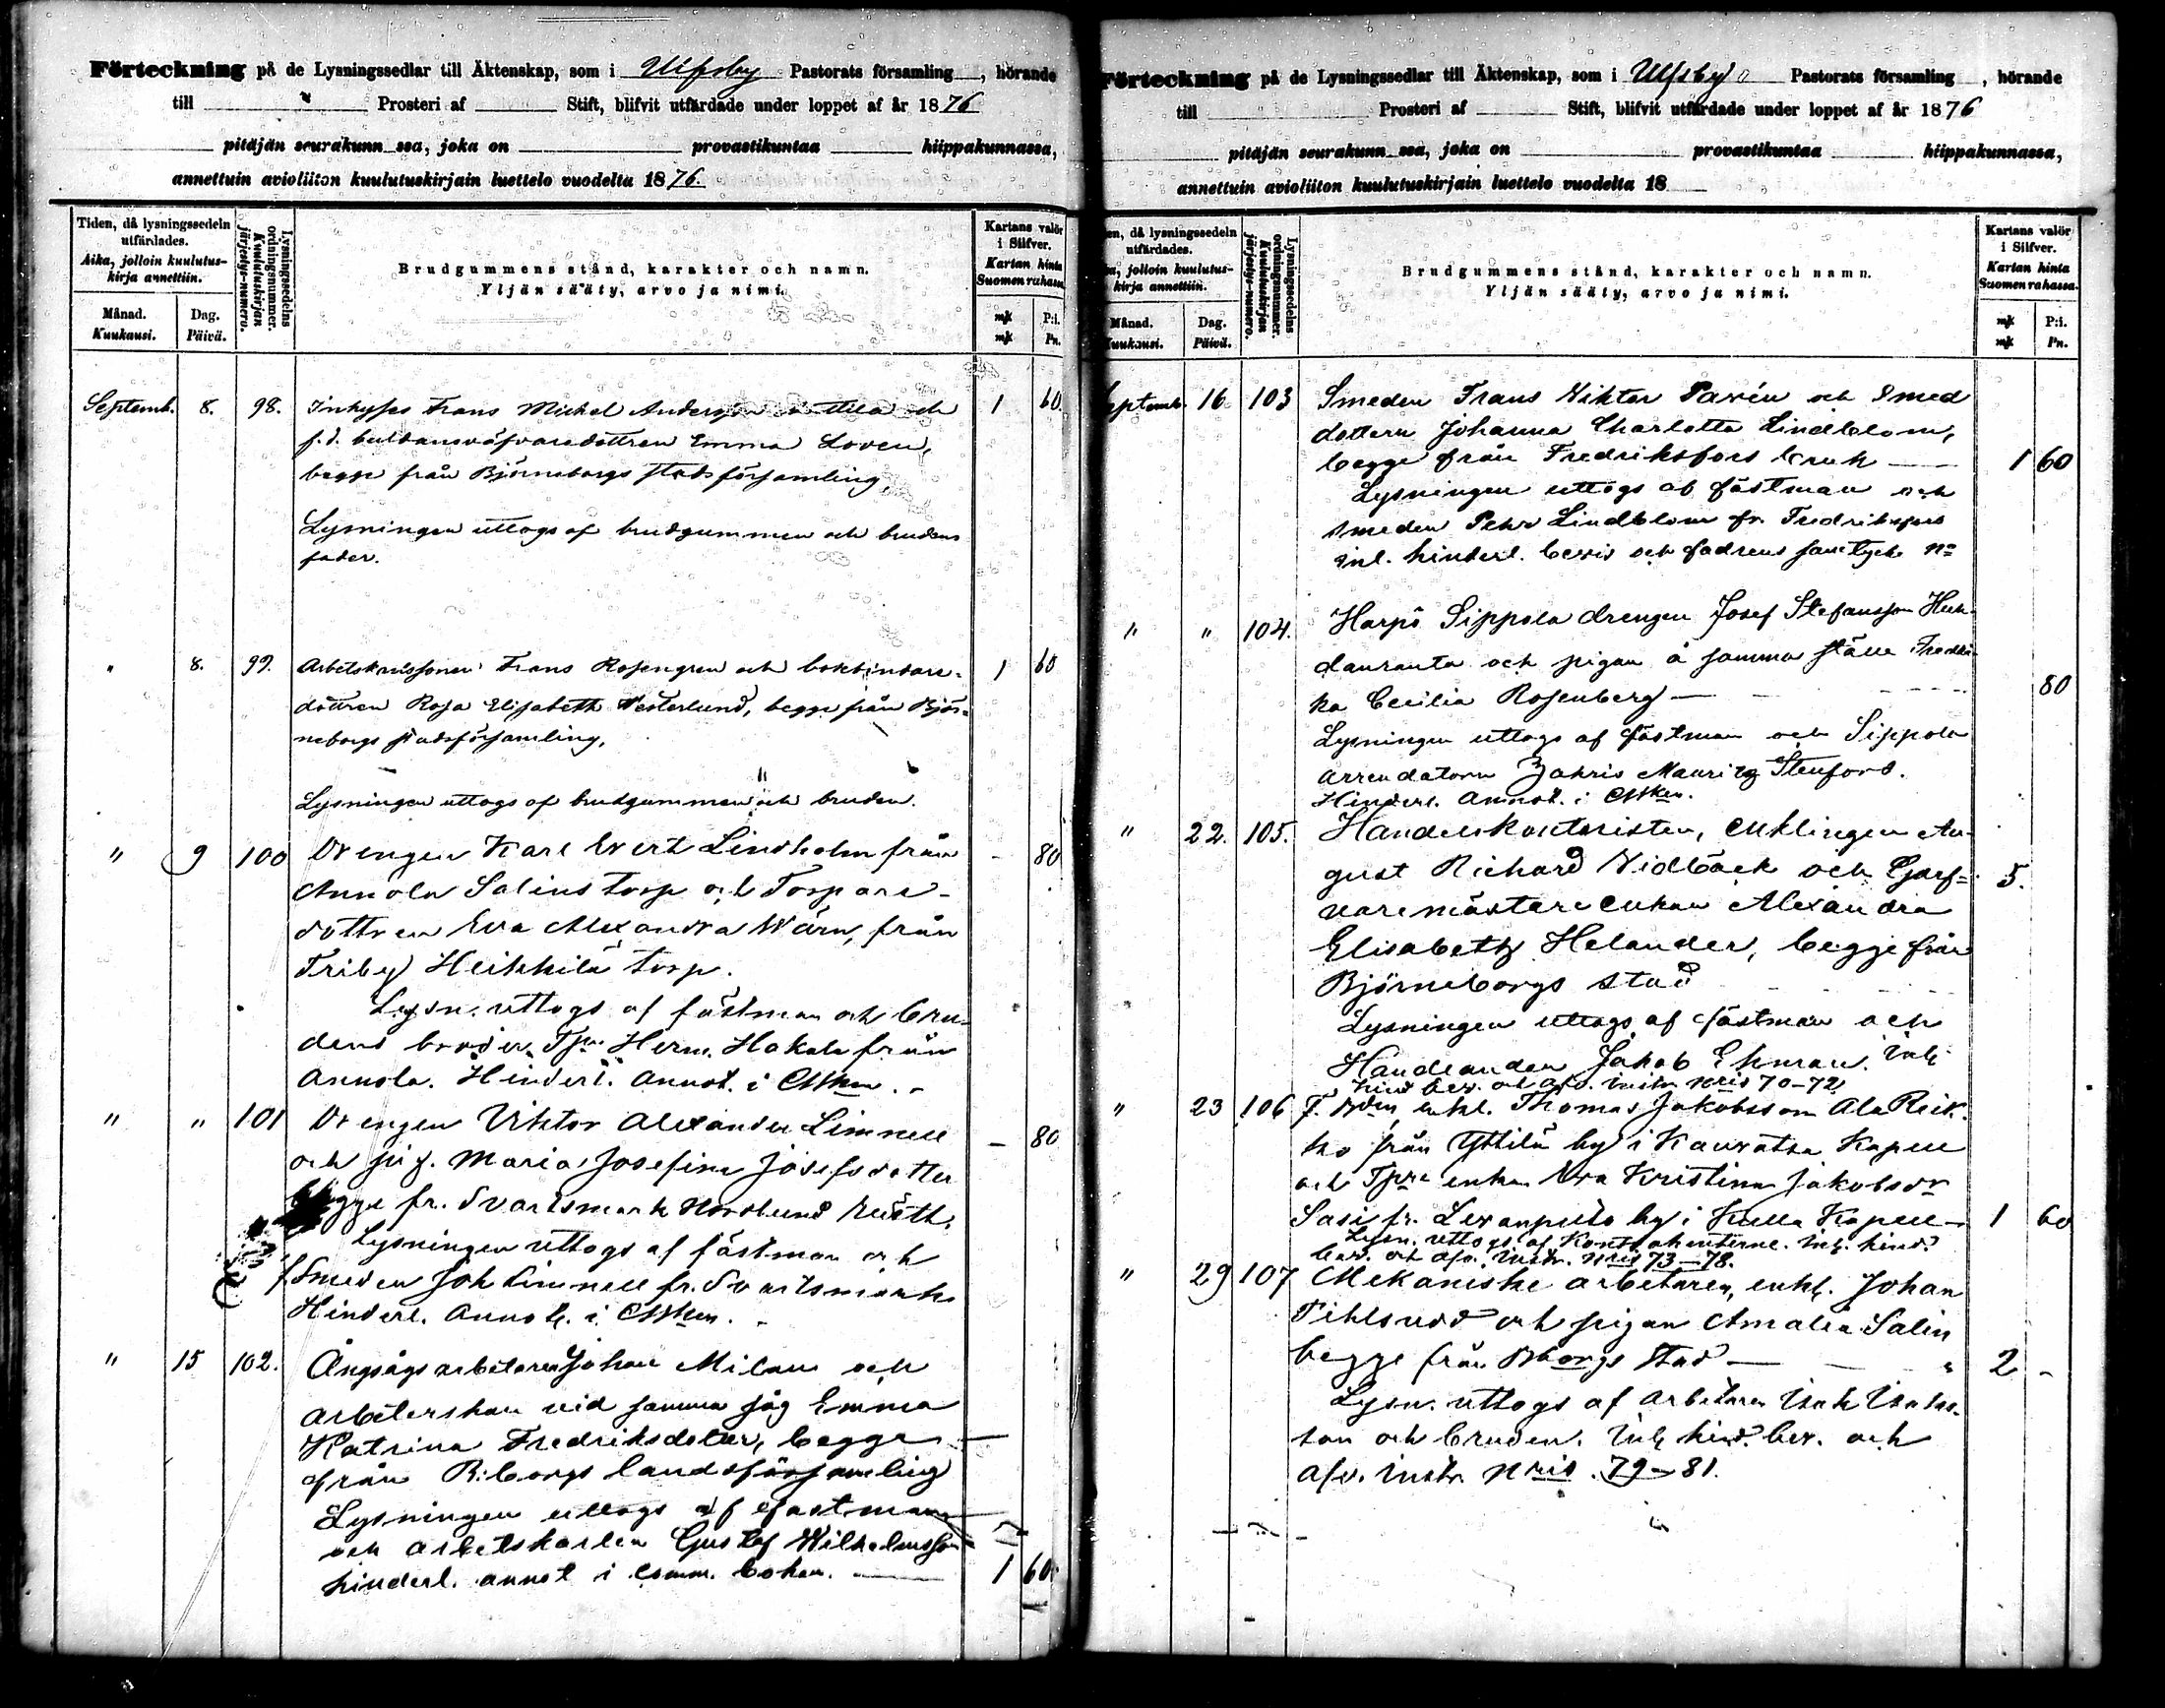 Förteckning på de Lysningssedlar till Äktenskap, som i Ulfsby Pastorats församling , hörande
till Prosteri af Stift, blifvit utfärdade under loppet af år 1876
pitäjän seurakunn ssa, joka on provastikuntaa hiippakunnassa,
annettuin avioliiton kuulutuskirjain luettelo vuodelta 1876.
Tiden, då lysningssedeln
utfärdades.
Aika, jolloin kuulutus-
kirja annettiin.
Månad.
Kuukausi.
Dag.
Päivä.
Lysningssedelns
ordningsnummer.
Kuulutuskirjan
järjestys-numero.
Brudgummens stånd, karakter och namn.
Yljän sääty, arvo ja nimi.
Kartans valör
i Silfver.
Kartan hinta
Suomen rahassa.
mk P:i.
mk Pn.
Septemb. 8. 98. Inhyses Frans Michel Andersson och 1 60.
f.d. dottren Emma Loven,
begge från Björneborgs stadsförsamling,
Lysningen uttogs af brudgummen och brudens
fader.
" 8. 99. Arbetskarlssonen Frans Rosengren och bokbindare- 1 60
dottren Rosa Elisabeth Vesterlund, begge från Björ-
neborgs stadsförsamling,
Lysningen uttogs af brudgummen och bruden.
" 9 100 Drengen Karl Evert Lindholm från - 80
Annola Salins torp och Torpare-
dottren Eva Alexandra Wärn, från
Friby Heikkilä torp.
Lysn. uttogs af fästman och bru-
dens broder Tpn Herm. Hakala från
Annola. Hinderl. Annot. i
" " 101 Drengen Viktor Alexander Limnell — 80
och pig. Maria Josefina Josefsdotter
begge fr. Svartsmark Norrlund
Lysningen uttogs af fästman och
Smeden Joh Limnell fr. Svartsmark
Hinderl. Annot. i
" 15 102. Ångsågsarbetaren Johan Milan och
arbeterskan vid samma såg Emma
Katrina Fredriksdotter, begge
från B:borgs landsförsamling
Lysningen uttogs af fästman
och arbetskarlen Gustaf Wilhelmsson
hinderl. annot i comm. boken. 1 60
Förteckning på de Lysningssedlar till Äktenskap, som i Ulfsby Pastorats församling , hörande
till Prosteri af Stift, blifvit utfärdade under loppet af år 1876
pitäjän seurakunn ssa, joka on provastikuntaa hiippakunnassa,
annettuin avioliiton kuulutuskirjain luettelo vuodelta 18
en, då lysningssedeln
utfärdades.
a, jolloin kuulutus-
kirja annettiin.
Månad.
uukausi.
Dag.
Päivä.
Lysningssedelns
ordningsnummer.
Kuulutuskirjan
järjestys-numero.
Brudgummens stånd, karakter och namn.
Yljän sääty, arvo ja nimi.
Kartans valör
i Silfver.
Kartan hinta
Suomen rahassa.
mk P:i.
mk Pn.
eptemb. 16 103 Smeden Frans Viktor Pavén och Smed
dottern Johanna Charlotta Lindblom,
begge från Fredriksfors bruk — 1 60
Lysningen uttogs af fästman och
smeden Petter Lindblom fr. Fredriksfors
inl. hinderl. bevis och fadrens samtycke no
" " 104. Harpö Sippola drengen Josef Stefansson Hen-
danranta och pigan å samma ställe Fredri-
ka Cecilia Rosenberg — 80
Lysningen uttogs af fästman och Sippola
arrendatorn Zakris Mauritz Stenfors.
Hinderl. Annot. i
" 22. 105. Handelskontoristen, Au-
gust Richard Vidbäck och Garf- 5.
varemästare enkan Alexandra
Elisabeth Helander, begge från
Björneborgs stad
Lysningen uttogs af fästman och
Handlanden Jakob Ekman. Inl.
hind bev. och afv. instr. Nris 70-72
" 23 106 enkl. Thomas Jakobsson Ala Reik-
ko från Yttilä by i Kauvatsa Kapell
och Tpre enkan Eva Kristina Jakobsdr
Sasi fr. Levanpelto by i Kulla Kapell — 1 60
Lysn. uttogs af Kontrahenterne. Inl. hind.
bev. och afv. instr. Nris 73-78.
" 29 107 Mekaniske arbetaren, enkl. Johan
Pihlsund och pigan Amalia Salin
begge från Bborgs stad — 2 -
Lysn. uttogs af arbetaren Isak Isaks-
son och bruden. Inl. hind. bev. och
afv. instr. Nris. 79-81.